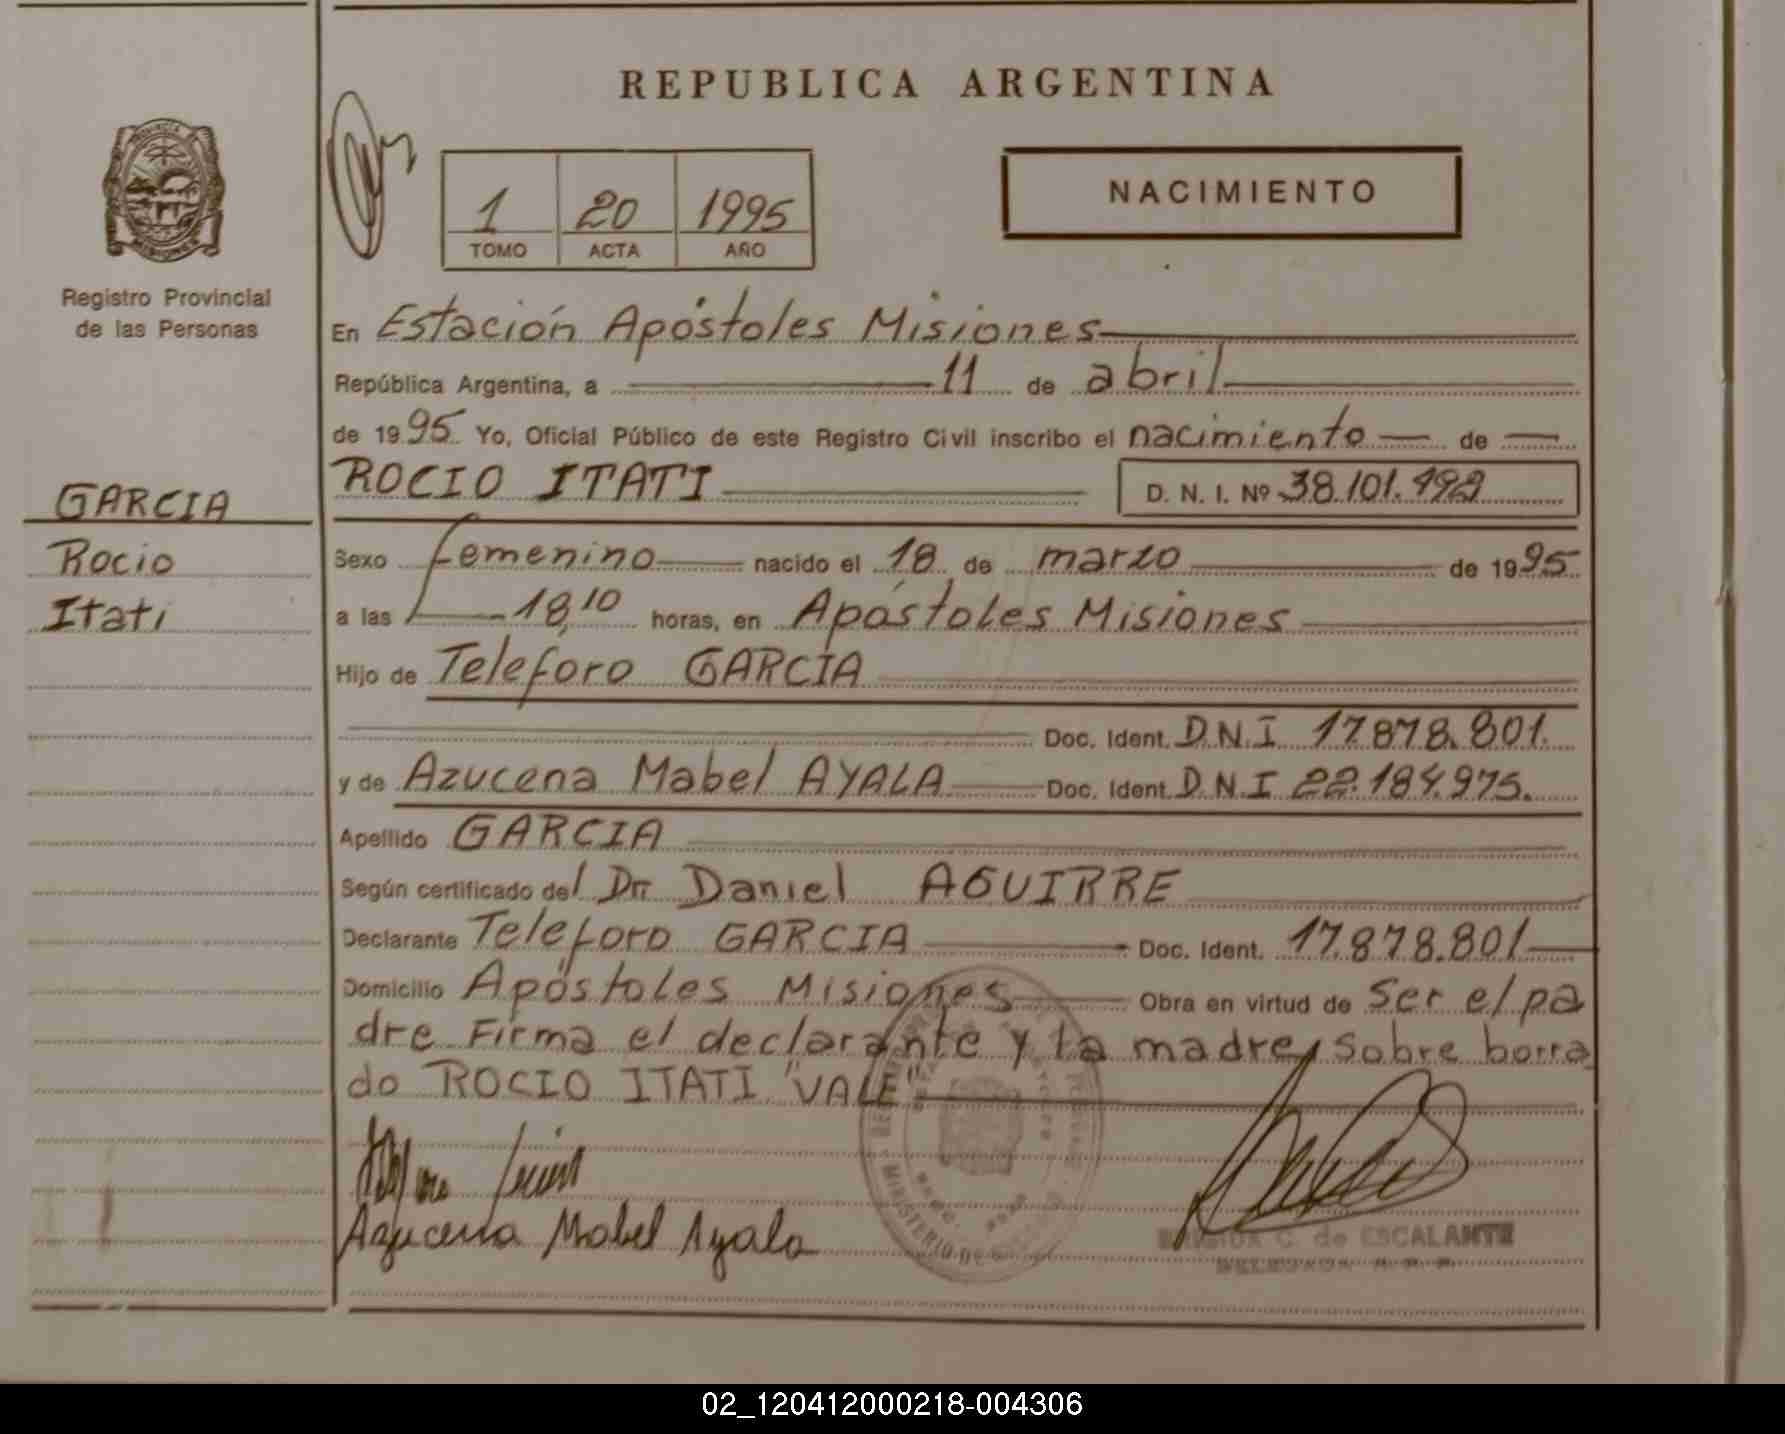 REPUBLICA ARGENTINA
PROVINCIA DE
MISIONES
Registro Provincial
de las Personas
1 20 1995
TOMO ACTA AÑO
NACIMIENTO
En Estación Apóstoles Misiones
República Argentina, a 11 de abril
de 1995 Yo, Oficial Público de este Registro Civil inscribo el nacimiento de
ROCIO ITATI D. N. I. Nº 38.101.492
GARCIA
Rocio
Itati
Sexo femenino nacido el 18 de marzo de 1995
a las 18,10 horas, en Apóstoles Misiones
Hijo de Teleforo GARCIA
Doc. Ident. D.N.I 17.878.801.
y de Azucena Mabel AYALA Doc. Ident. D.N.I 22.184.975.
Apellido GARCIA
Según certificado del Dr Daniel AGUIRRE
Declarante Teleforo GARCIA Doc. Ident. 17.878.801
Domicilio Apóstoles Misiones Obra en virtud de Ser el pa
dre Firma el declarante y la madre, sobre borra
do ROCIO ITATI "VALE"
MINISTERIO DE
Azucena Mabel Ayala
C. de ESCALANTE
02_120412000218-004306